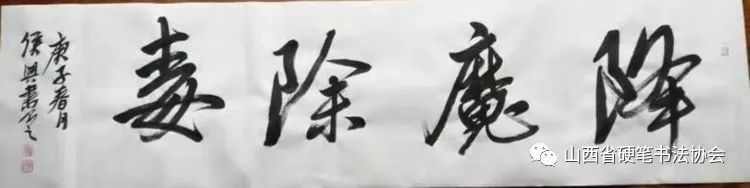 降魔除毒
庚子春月
侯興
山西省硬笔书法协会